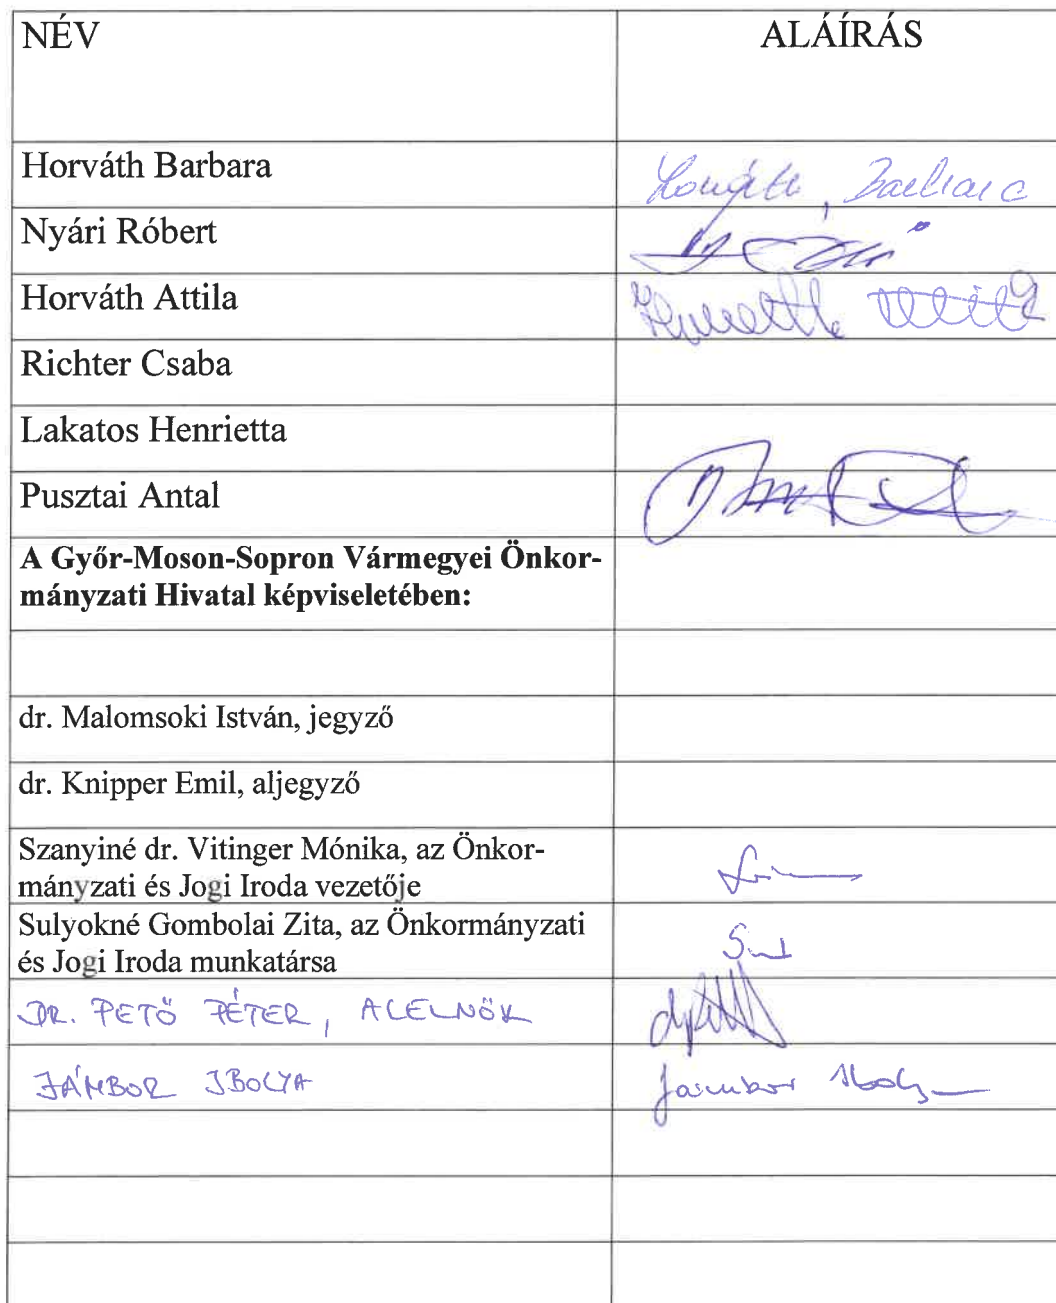 NÉV ALÁÍRÁS
Horváth Barbara Horváth Barbara
Nyári Róbert
Horváth Attila Horváth Attila
Richter Csaba
Lakatos Henrietta
Pusztai Antal
A Győr-Moson-Sopron Vármegyei Önkor-
mányzati Hivatal képviseletében:
dr. Malomsoki István, jegyző
dr. Knipper Emil, aljegyző
Szanyiné dr. Vitinger Mónika, az Önkor-
mányzati és Jogi Iroda vezetője
Sulyokné Gombolai Zita, az Önkormányzati
és Jogi Iroda munkatársa
DR. PETŐ PÉTER, ALELNÖK
JÁMBOR IBOLYA Jámbor Ibolya